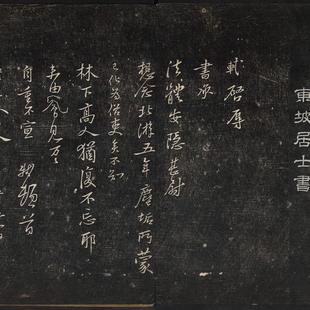 東坡居士書
軾啓辱
書承
法體安隱甚尉
想念北游五年塵垢所蒙
已化為俗吏矣不知
林下高人猶復不忘耶
未由見
自重不宣 軾頓首
人